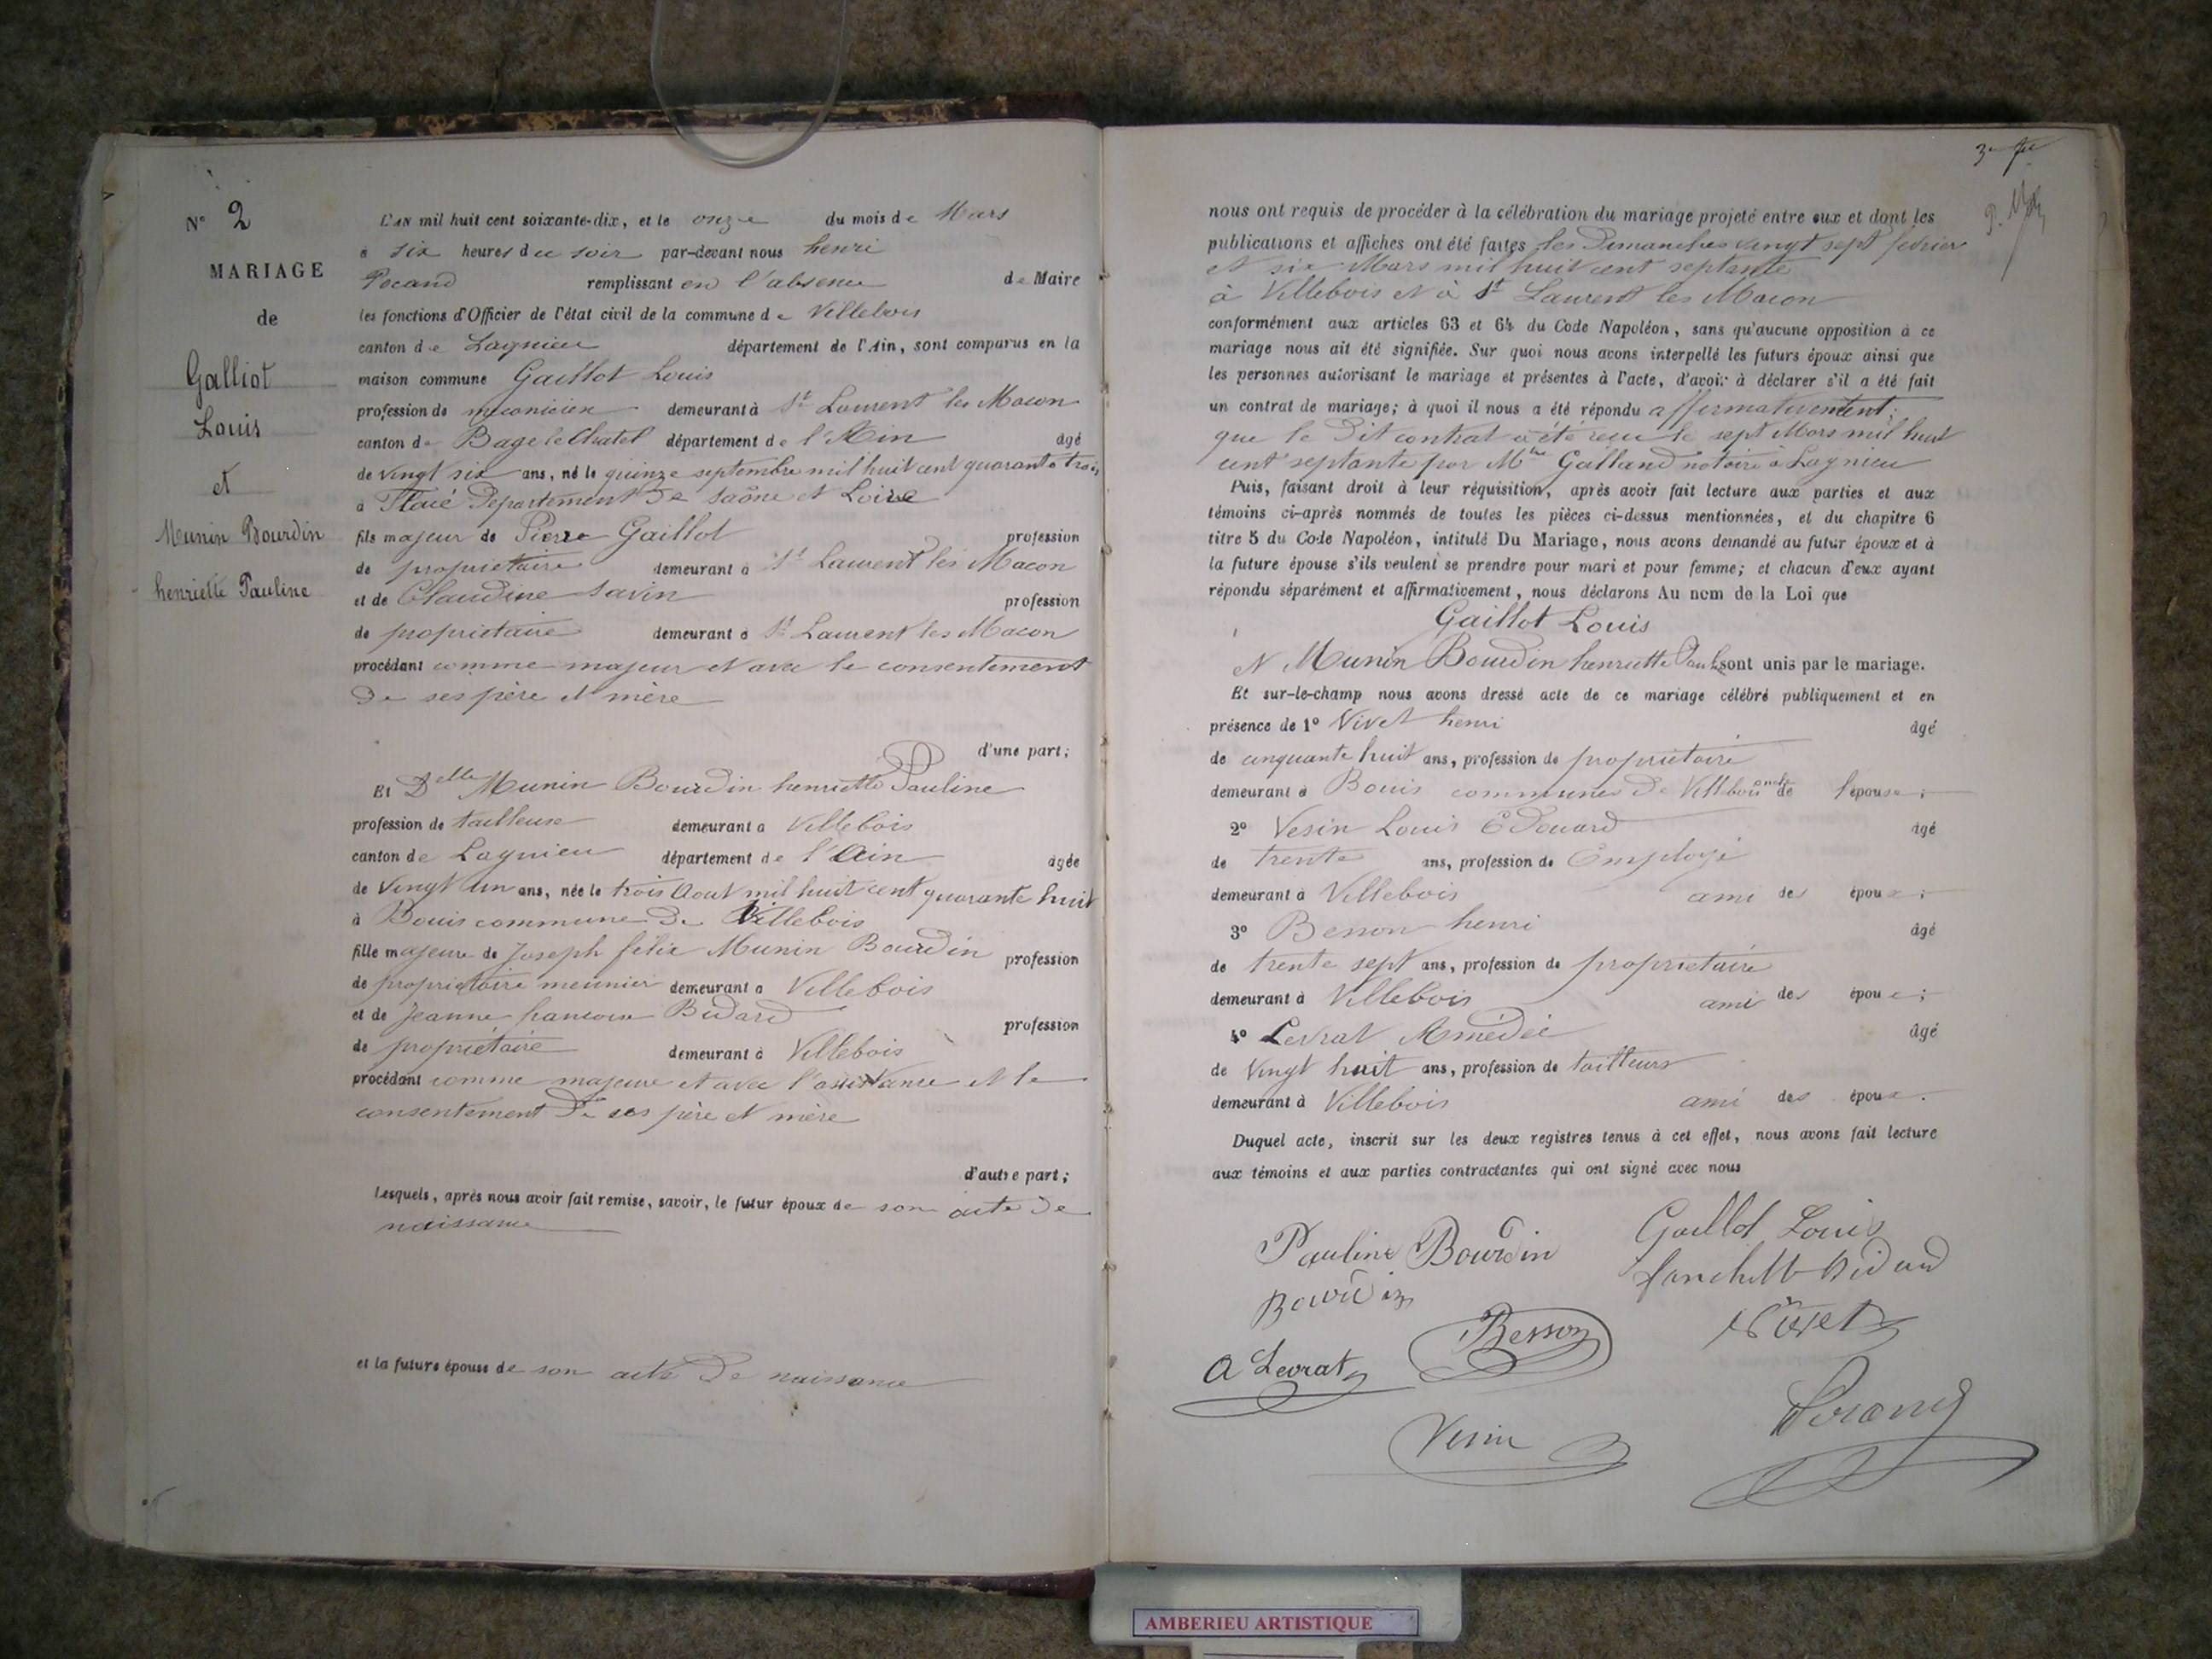 N° 2
MARIAGE
de
Galliot
Louis
et
Munin Bourdin
henriette Pauline
L'AN mil huit cent soixante-dix, et le onze du mois de Mars
à six heures du soir par-devant nous henri
Pocand remplissant en l'absence de Maire
les fonctions d'Officier de l'état civil de la commune de Villebois
canton de Lagnieu département de l'Ain, sont comparus en la
maison commune Gaillot Louis
profession de mécanicien demeurant à St Laurent les Macon
canton de Bage le Chatel département de l'Ain âgé
de vingt six ans, né le quinze septembre mil huit cent quarante trois
à Flacé Departement de Saône et Loire
fils majeur de Pierre Gaillot profession
de propriétaire demeurant à St Laurent les Macon
et de Claudine Savin profession
de propriétaire demeurant à St Laurent les Macon
procédant comme majeur et avec le consentement
de ses père et mère
d'une part;
Et Delle Munin Bourdin henriette Pauline
profession de tailleuse demeurant à Villebois
canton de Lagnieu département de l'Ain âgée
de Vingt un ans, née le trois Aout mil huit cent quarante huit
à Bouis commune de Villebois
fille majeure de Joseph felix Munin Bourdin profession
de propriétaire meunier demeurant à Villebois
et de Jeanne francoise Bidard profession
de propriétaire demeurant à Villebois
procédant comme majeure et avec l'assistance et le
consentement de ses père et mère
d'autre part;
Lesquels, après nous avoir fait remise, savoir, le futur époux de son acte de
naissance
et la future épouse de son acte de naissance
nous ont requis de procéder à la célébration du mariage projeté entre eux et dont les
publications et affiches ont été faites les Dimanches vingt sept février
et six Mars mil huit cent septante
à Villebois et à St Laurent les Macon
conformément aux articles 63 et 64 du Code Napoléon, sans qu'aucune opposition à ce
mariage nous ait été signifiée. Sur quoi nous avons interpellé les futurs époux ainsi que
les personnes autorisant le mariage et présentes à l'acte, d'avoir à déclarer s'il a été fait
un contrat de mariage; à quoi il nous a été répondu affirmativement;
que le dit contrat a été reçu le sept Mars mil huit
cent septante par Mtre Galland notaire à Lagnieu
Puis, faisant droit à leur réquisition, après avoir fait lecture aux parties et aux
témoins ci-après nommés de toutes les pièces ci-dessus mentionnées, et du chapitre 6
titre 5 du Code Napoléon, intitulé Du Mariage, nous avons demandé au futur époux et à
la future épouse s'ils veulent se prendre pour mari et pour femme; et chacun d'eux ayant
répondu séparément et affirmativement, nous déclarons Au nom de la Loi que
Gaillot Louis
et Munin Bourdin henriette sont unis par le mariage.
Et sur-le-champ nous avons dressé acte de ce mariage célébré publiquement et en
présence de 1° Vivet henri âgé
de cinquante huit ans, profession de propriétaire
demeurant à Bouis commune de Villebois oncle de l'épouse;
2° Vesin Louis Edouard âgé
de trente ans, profession de Employé
demeurant à Villebois ami des époux;
3° Besson henri âgé
de trente sept ans, profession de propriétaire
demeurant à Villebois ami des époux;
4° Levrat Amédée âgé
de Vingt huit ans, profession de tailleurs
demeurant à Villebois ami des époux.
Duquel acte, inscrit sur les deux registres tenus à cet effet, nous avons fait lecture
aux témoins et aux parties contractantes qui ont signé avec nous
Pauline Bourdin Gaillot Louis
Bourdin fanchette Bidard
Besson Vivet
A Levrat
Vesin
AMBERIEU ARTISTIQUE